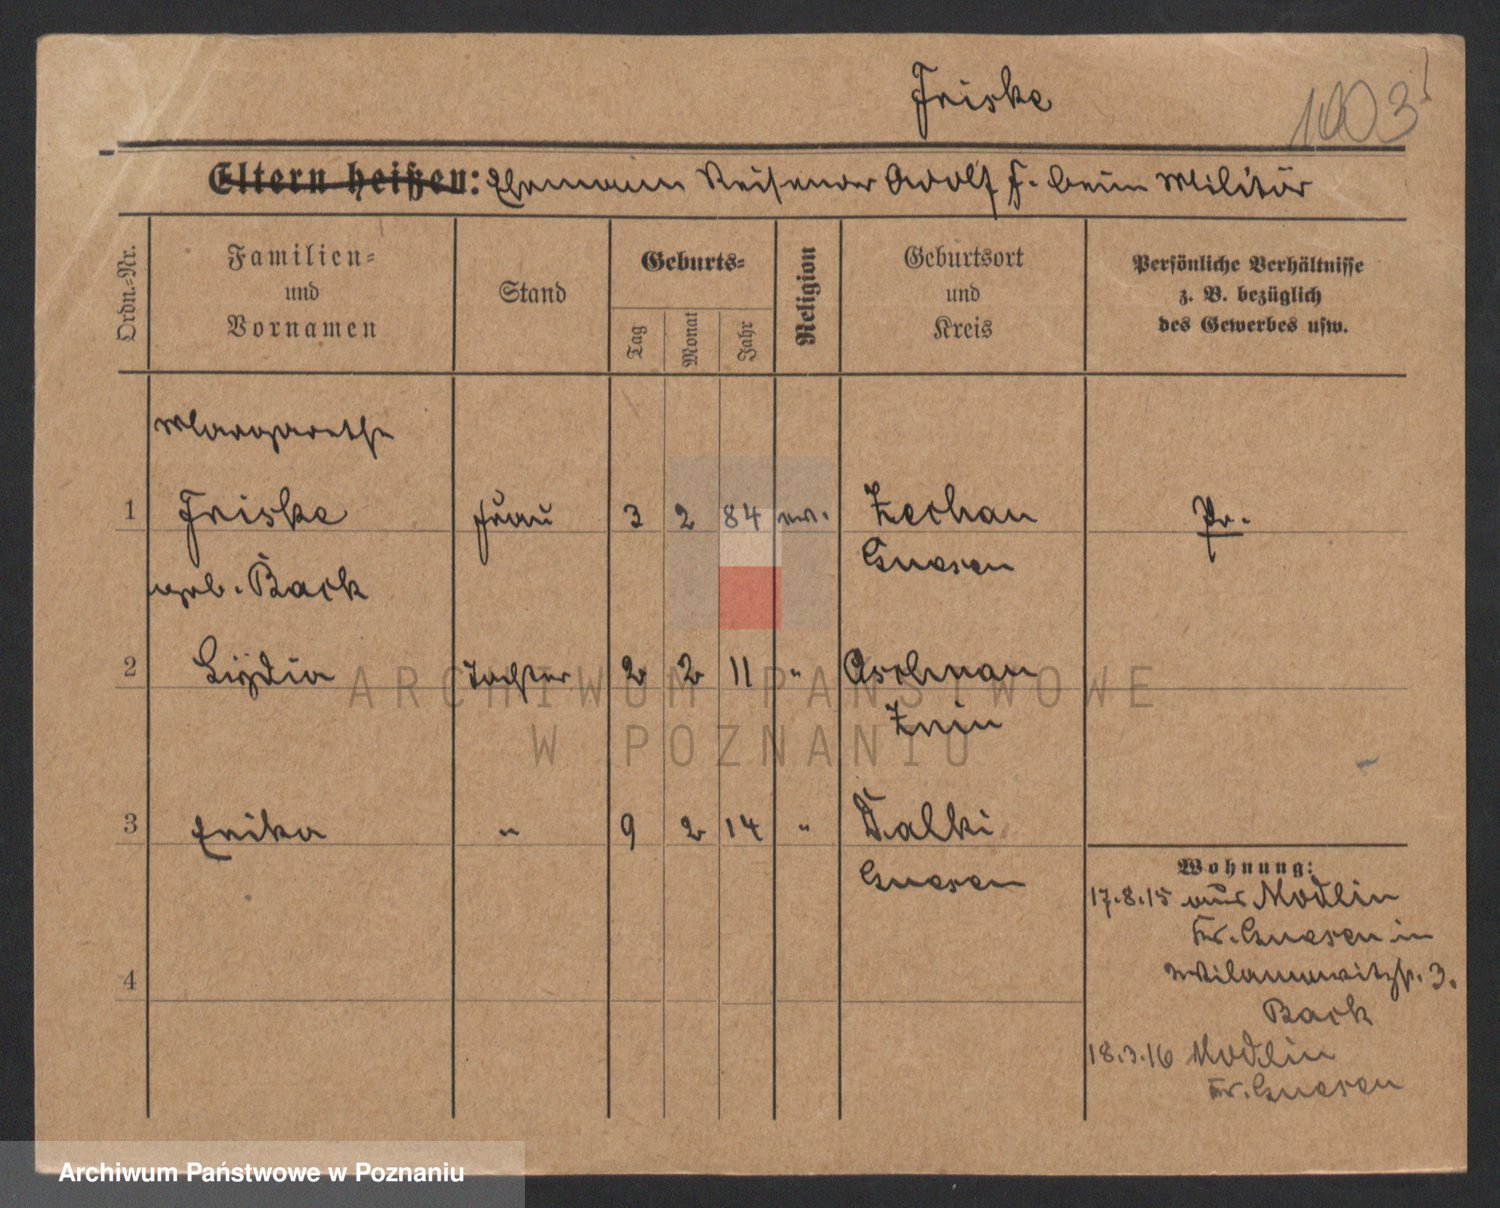 Friske
1003
Eltern heißen: Ehemann Reisender Adolf F. beim Militär
Ordn.-Nr.
Familien-
und
Vornamen
Stand
Geburts-
Tag
Monat
Jahr
Religion
Geburtsort
und
Kreis
Persönliche Verhältnisse
z. B. bezüglich
des Gewerbes usw.
Margarethe
1 Friske Frau 3 2 84 ev. Zechau Pr.
geb. Back Gnesen
2 Lydia Tochter 2 2 11 "
Znin
3 Erika " 9 2 14 " Dalki
Gnesen
4
Wohnung:
17.8.15 aus Modlin
Kr. Gnesen in
Wilamowitzstr. 3.
Back
18.3.16 Modlin
Kr. Gnesen
ARCHIWUM PAŃSTWOWE
W POZNANIU
Archiwum Państwowe w Poznaniu